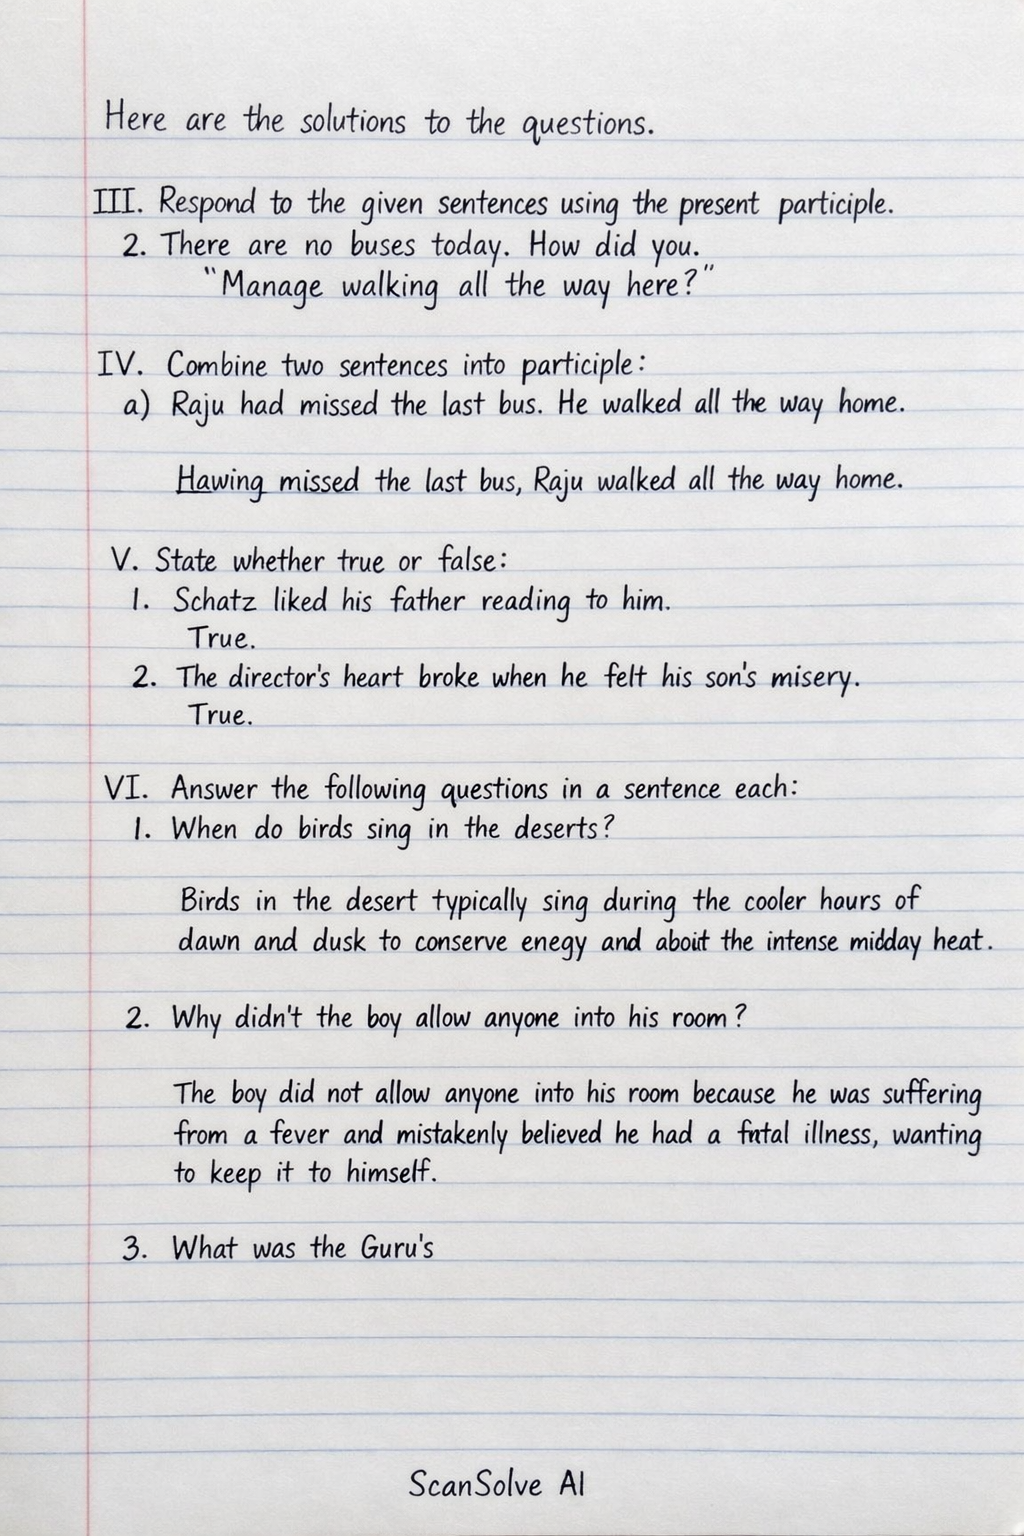 Here are the solutions to the questions.
III. Respond to the given sentences using the present participle.
2. There are no buses today. How did you.
"Manage walking all the way here?"
IV. Combine two sentences into participle:
a) Raju had missed the last bus. He walked all the way home.
Hawing missed the last bus, Raju walked all the way home.
V. State whether true or false:
1. Schatz liked his father reading to him.
True.
2. The director's heart broke when he felt his son's misery.
True.
VI. Answer the following questions in a sentence each:
1. When do birds sing in the deserts?
Birds in the desert typically sing during the cooler hours of
dawn and dusk to conserve enegy and about the intense midday heat.
2. Why didn't the boy allow anyone into his room?
The boy did not allow anyone into his room because he was suffering
from a fever and mistakenly believed he had a fatal illness, wanting
to keep it to himself.
3. What was the Guru's
ScanSolve AI